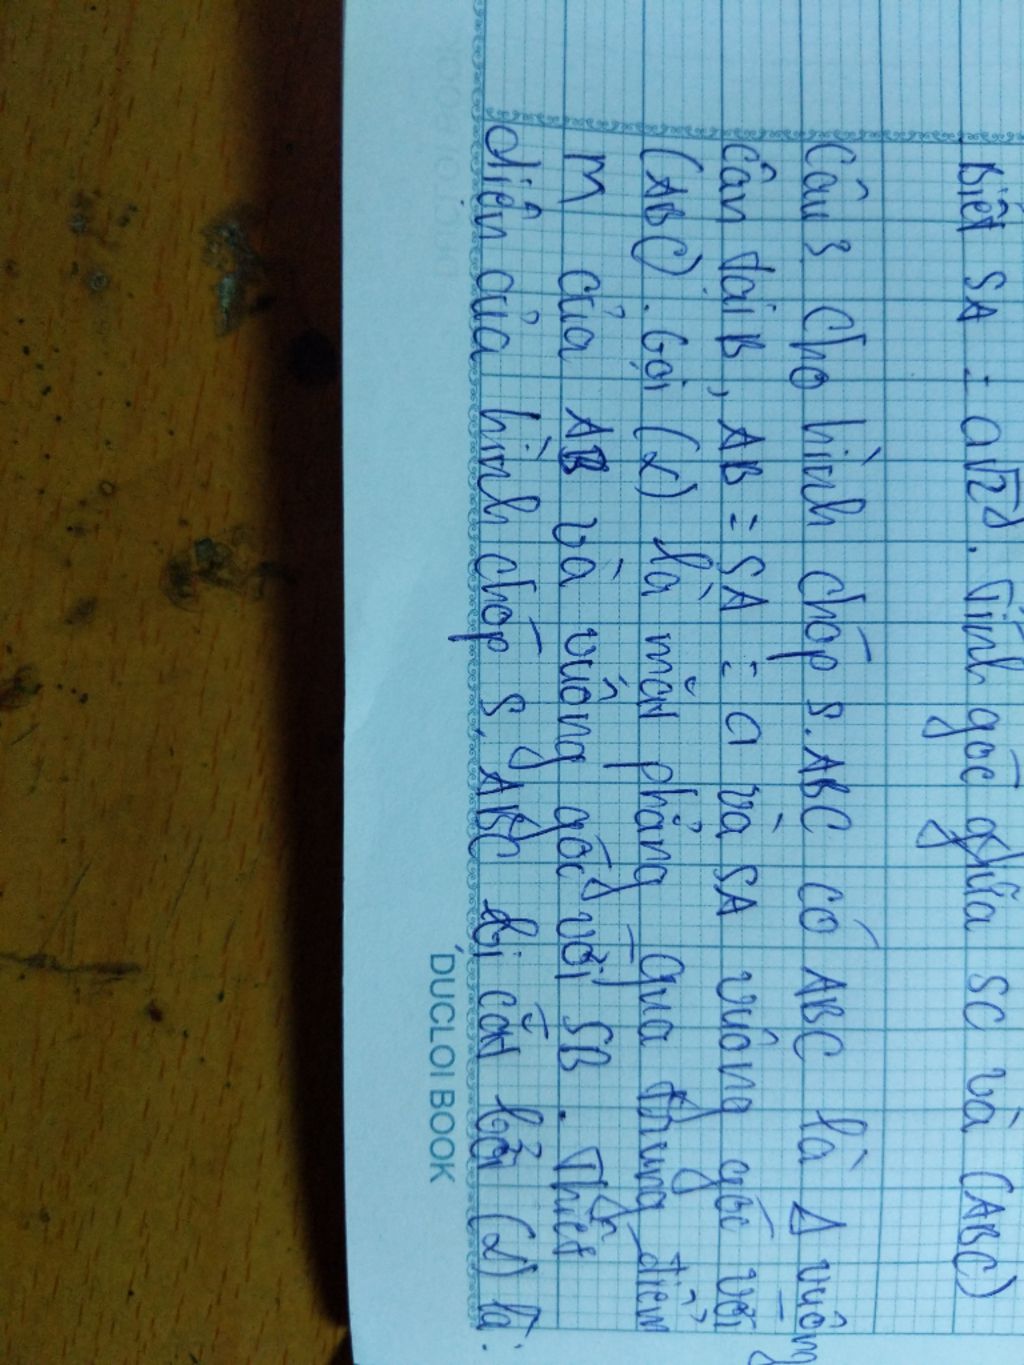 Biết SA = a√2. Tính góc giữa SC và (ABC)
Câu 3 Cho hình chóp S.ABC có ABC là Δ vuông
cân tại B, AB = SA = a và SA vuông góc với
(ABC). Gọi (α) là mặt phẳng qua trung điểm
M của AB và vuông góc với SB. Thiết
diện của hình chóp S.ABC bị cắt bởi (α) là:
DUCLOI BOOK